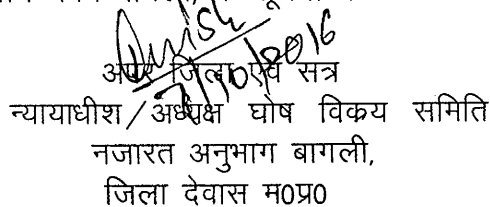 अपर जिला एवं सत्र
न्यायाधीश/अध्यक्ष घोष विक्रय समिति
नजारत अनुभाग बागली,
जिला देवास म0प्र0
7/10/2016